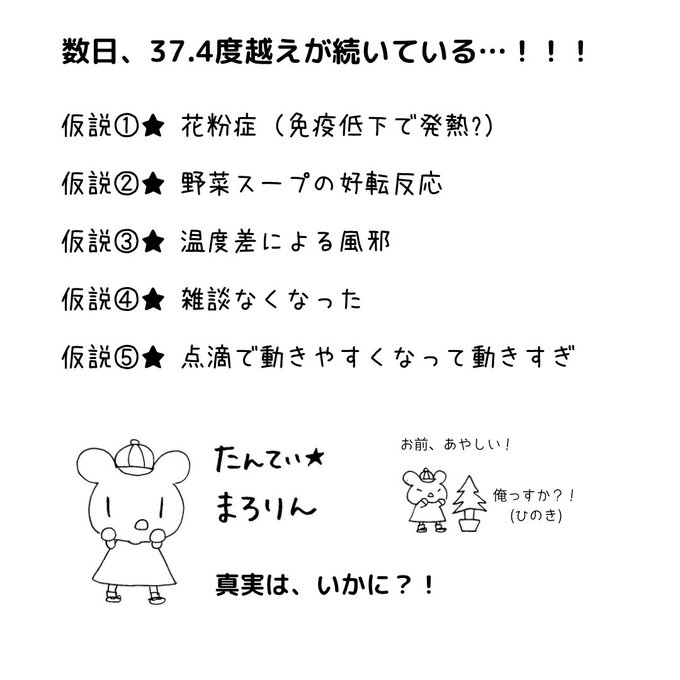 数日、37.4度越えが続いている…！！！
仮説①★ 花粉症（免疫低下で発熱?）
仮説②★ 野菜スープの好転反応
仮説③★ 温度差による風邪
仮説④★ 雑談なくなった
仮説⑤★ 点滴で動きやすくなって動きすぎ
たんてい★
まろりん
真実は、いかに？！
お前、あやしい！
俺っすか？！
(ひのき)